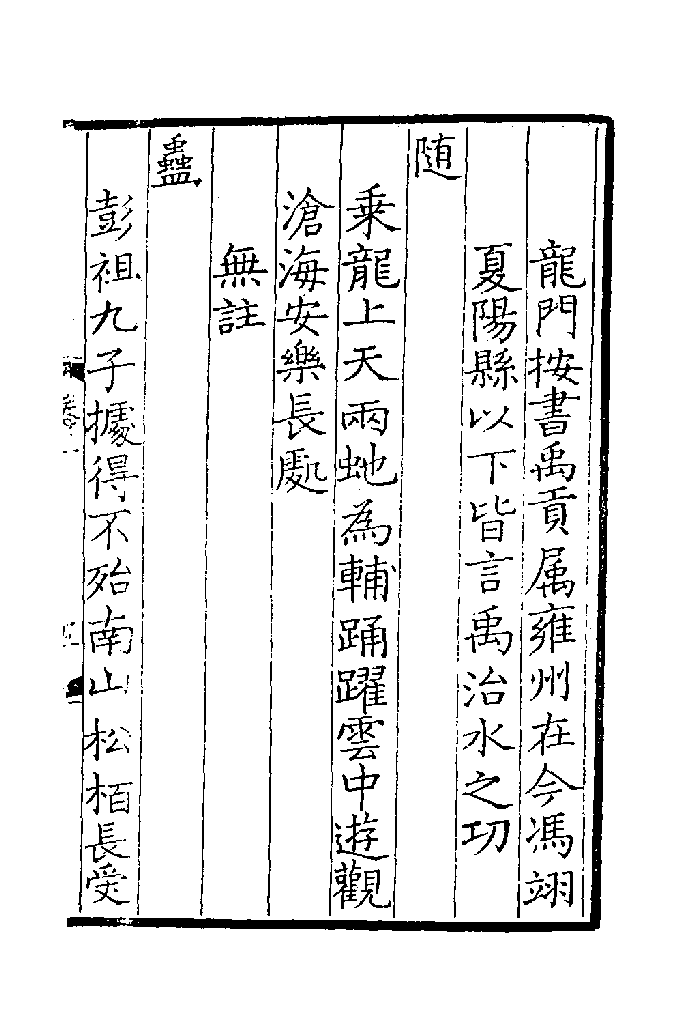 龍門按書禹貢属雍州在今馮翊
夏陽縣以下皆言禹治水之功
随
乗龍上天兩虵為輔踊躍雲中遊觀
滄海安樂長處
無註
蠱
彭祖九子據得不殆南山松栢長受